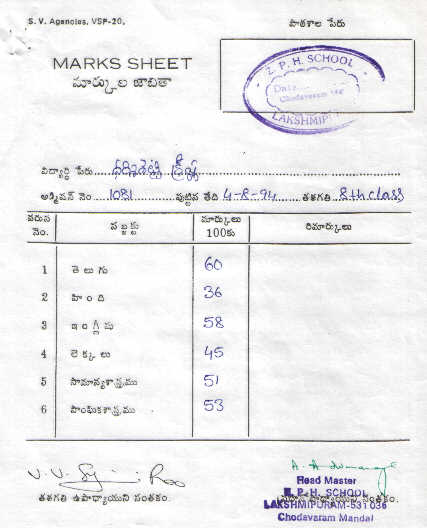 S. V. Agencies, VSP-20.
పాఠశాల పేరు
MARKS SHEET
మార్కుల జాబితా
Z. P. H. SCHOOL
Date
Chodavaram
LAKSHMIPURAM
విద్యార్థి పేరు
అడ్మిషన్ నెం 1081 పుట్టిన తేది 4-8-94 తరగతి 8th class
వరుస నెం. సబ్జక్టు మార్కులు 100కు రిమార్కులు
1 తెలుగు 60
2 హింది 36
3 ఇంగ్లీషు 58
4 లెక్కలు 45
5 సామాన్యశాస్త్రము 51
6 సాంఘికశాస్త్రము 53
తరగతి ఉపాధ్యాయుని సంతకం.
ప్రధానోపాధ్యాయుని సంతకం.
Head Master
Z. P. H. SCHOOL
LAKSHMIPURAM-531 036
Chodavaram Mandal